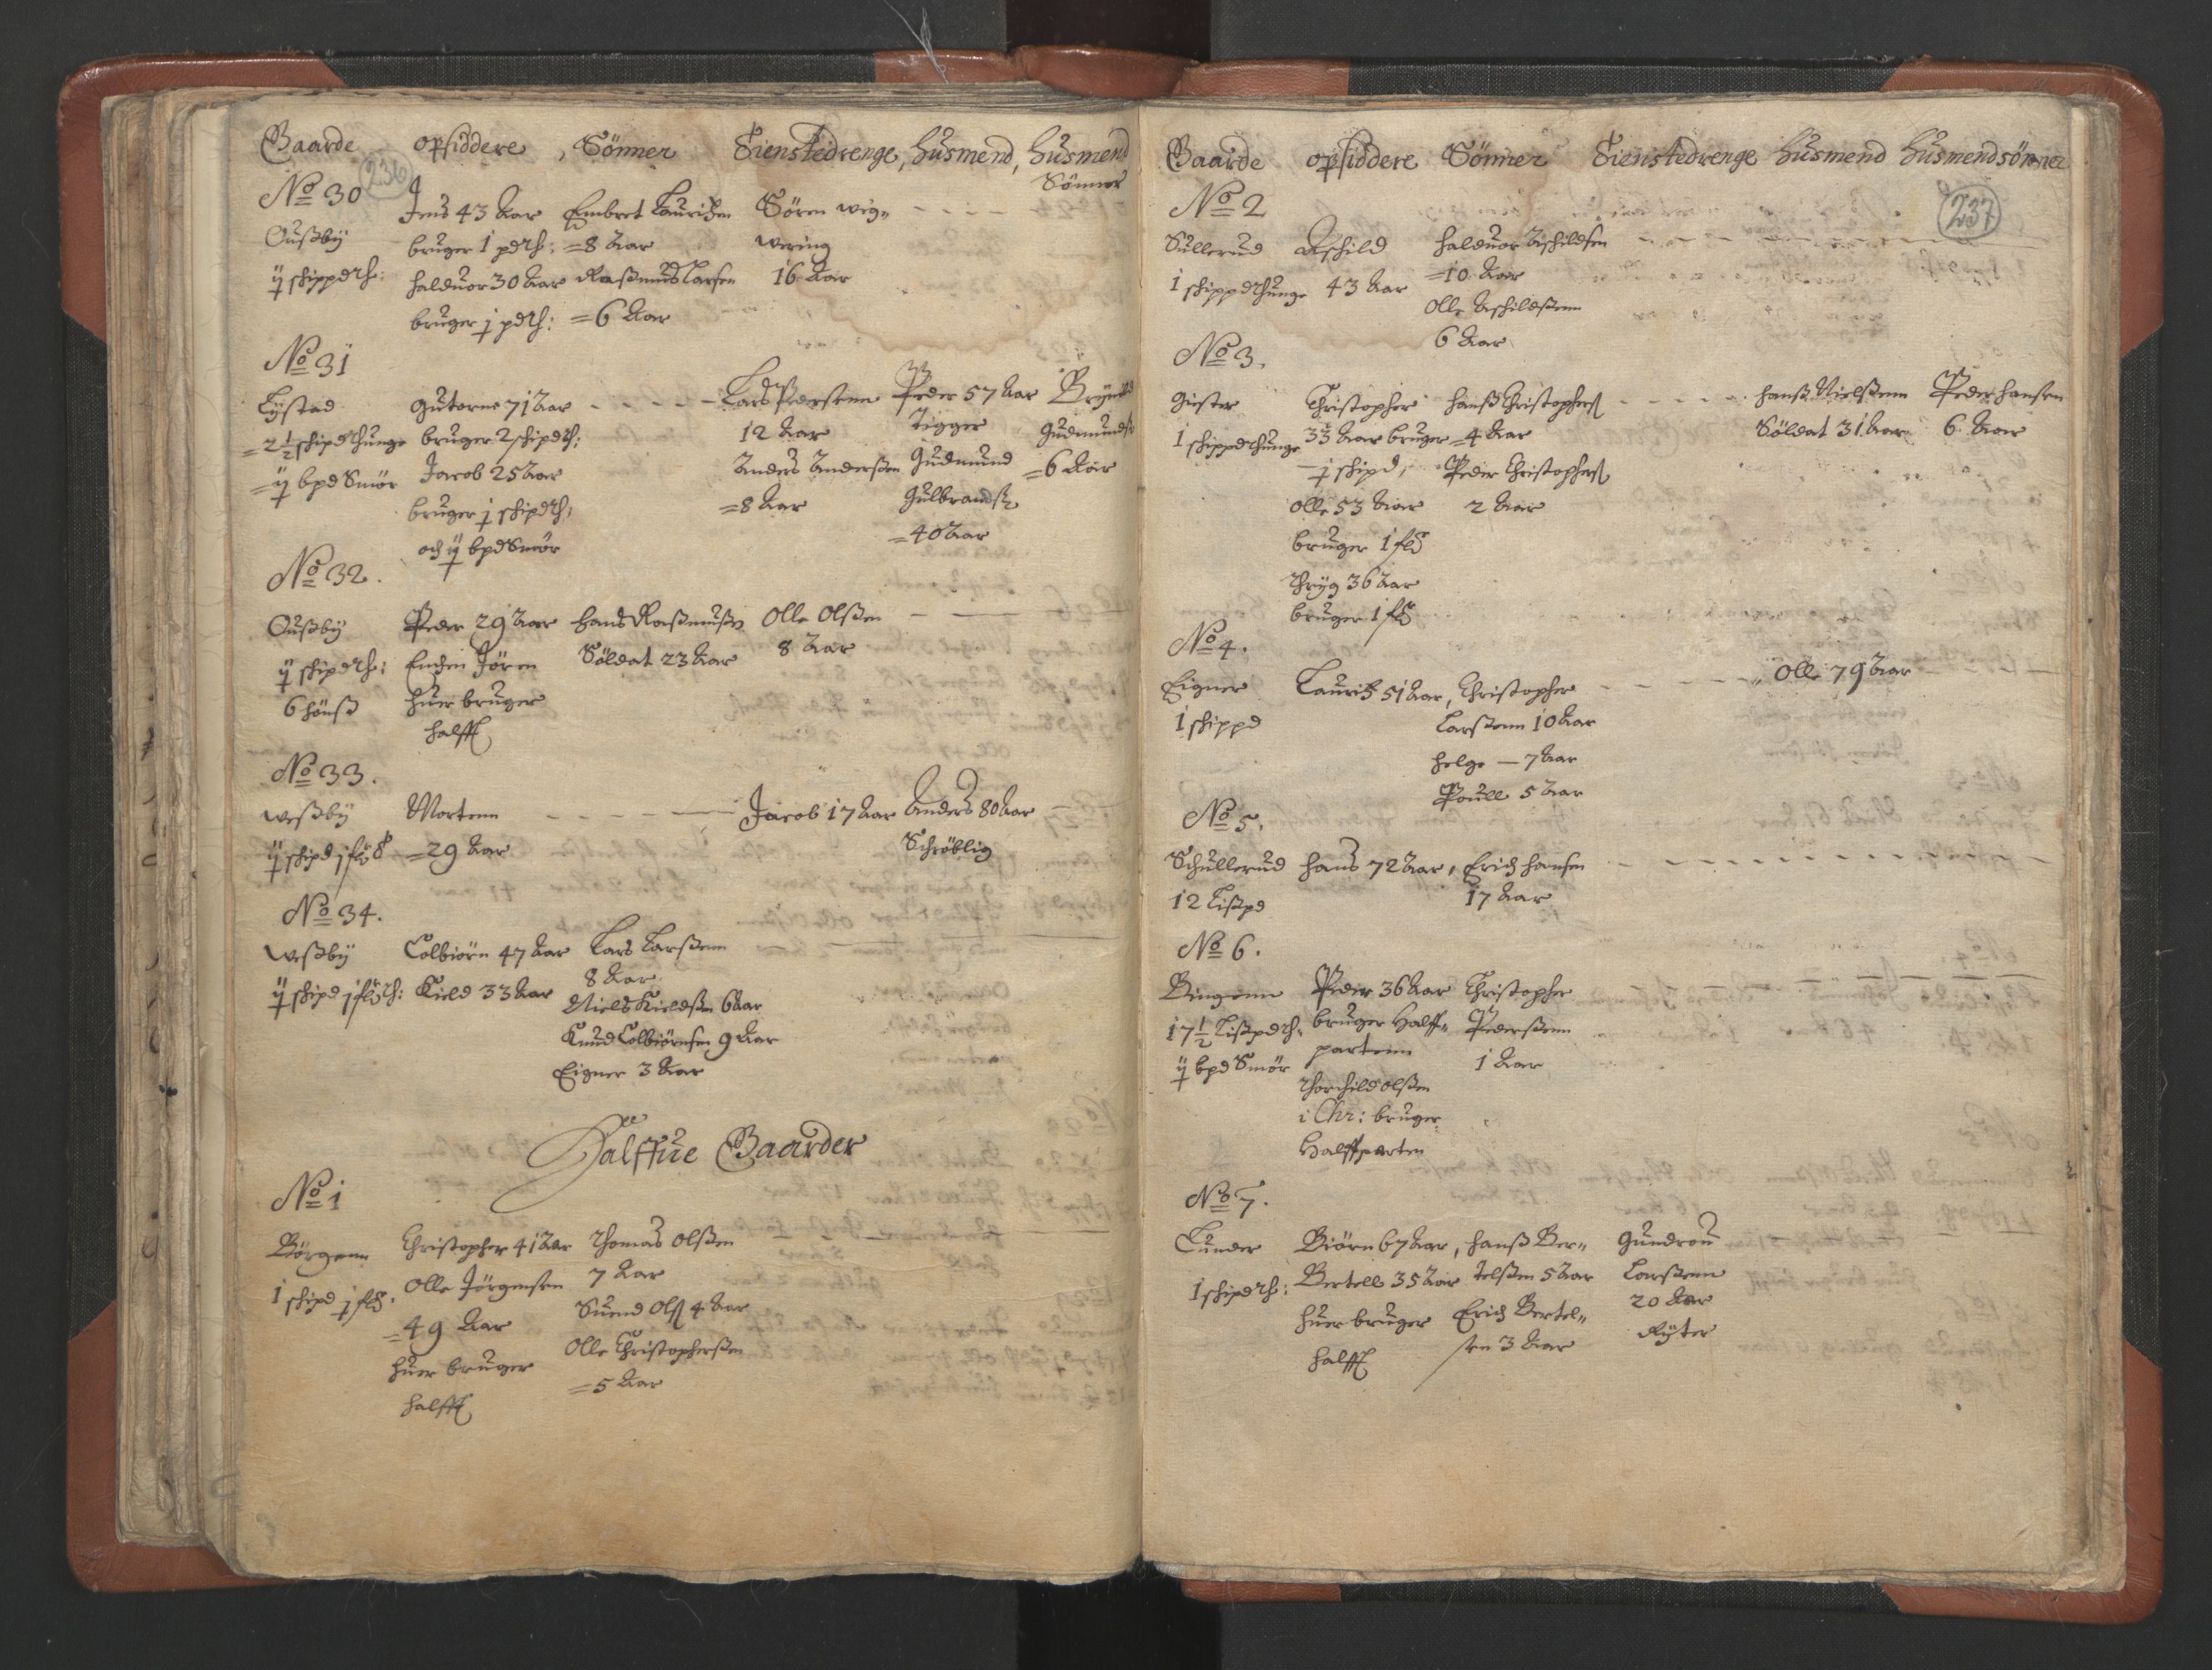 Gaarde opsiddere, Sönner Tienstedrenge, Husmend, Husmend
Sönner
236
No 30
Oußby
ij schippd th:
Jens 43 Aar
bruger 1 pd th:
Halduor 30 Aar
bruger j pd th:
Embret Lauridzen
=8 Aar
Raßmus Larsen
=6 Aar
Sören weg=
wering
16 Aar
No 31
Lystad
=2½ schipd thunge
=ij bpd Smör
Gutorme 71 Aar
bruger 2 schipd th:
Jacob 25 Aar
bruger j schipd th:
och ij bpd Smör
Lars Pederssenn
12 Aar
Anders Anderßen
=8 Aar
Peder 57 Aar
Tigger
Gudmund
Gulbrandß
=40 Aar
Gudmunds
=6 Aar
No 32.
Oußby
ij schipd th:
6 hönß
Peder 29 Aar
Enchen Jören
huer bruger
halfft
Hans Raßmuß
Soldat 23 Aar
Olle Olßen
8 Aar
No 33.
weßby
ij schipd j fl 8
Mortenn
=29 Aar
Jacob 17 Aar
Anders 80 Aar
Schröblig
No 34.
weßby
ij schipd j fl th:
Colbiörn 47 Aar
Kield 33 Aar
Lars Larßenn
8 Aar
Niels Kieldßen 6 Aar
Knud Colbiörnsen 9 Aar
Eigner 3 Aar
Halffue Gaarder
No 1
Börgenn
1 schipd j fl
Christopher 41 Aar
Olle Jörgensen
=49 Aar
huer bruger
halfft
Thomas Olßen
7 Aar
Suend Olß 4 Aar
Olle Christopherßen
=5 Aar
Gaarde opsiddere Sönner Tienstedrenge Husmend Husmendsönner
237
No 2
Sullerud
1 schippd thunge
Aschild
43 Aar
Halduor Aschildsen
=10 Aar
Olle Aschildßenn
6 Aar
No 3.
Gister
1 schippd thunge
Christopher
33 Aar bruger
j schipd,
Olle 53 Aar
bruger 1 fl
Thryg 36 Aar
bruger 1 fl
Hanß Christophers
=4 Aar
Peder Christophers
2 Aar
Hanß Nielßenn
Soldat 31 Aar
Peder Hansen
6 Aar
No 4.
Eigner
1 schippd
Lauritz 51 Aar,
Christopher
Larßenn 10 Aar
Helge — 7 Aar
Pouell 5 Aar
Olle 79 Aar
No 5.
Schullerud
12 Lißpd
Hans 72 Aar,
Erich Hansen
17 Aar
No 6.
Bingenn
17½ Lißpd th:
ij bpd Smör
Peder 36 Aar
bruger Halff=
partenn
Thorchild Olßen
i Chr: bruger
Halffparten
Christopher
Pederßenn
1 Aar
No 7.
Lunder
1 schipd th:
Biörn 67 Aar,
Bertell 35 Aar
huer bruger
halfft
Hanß Ber=
telßen 5 Aar
Erich Bertel=
sen 3 Aar
Gundrou
Larßenn
20 Aar
Ryter